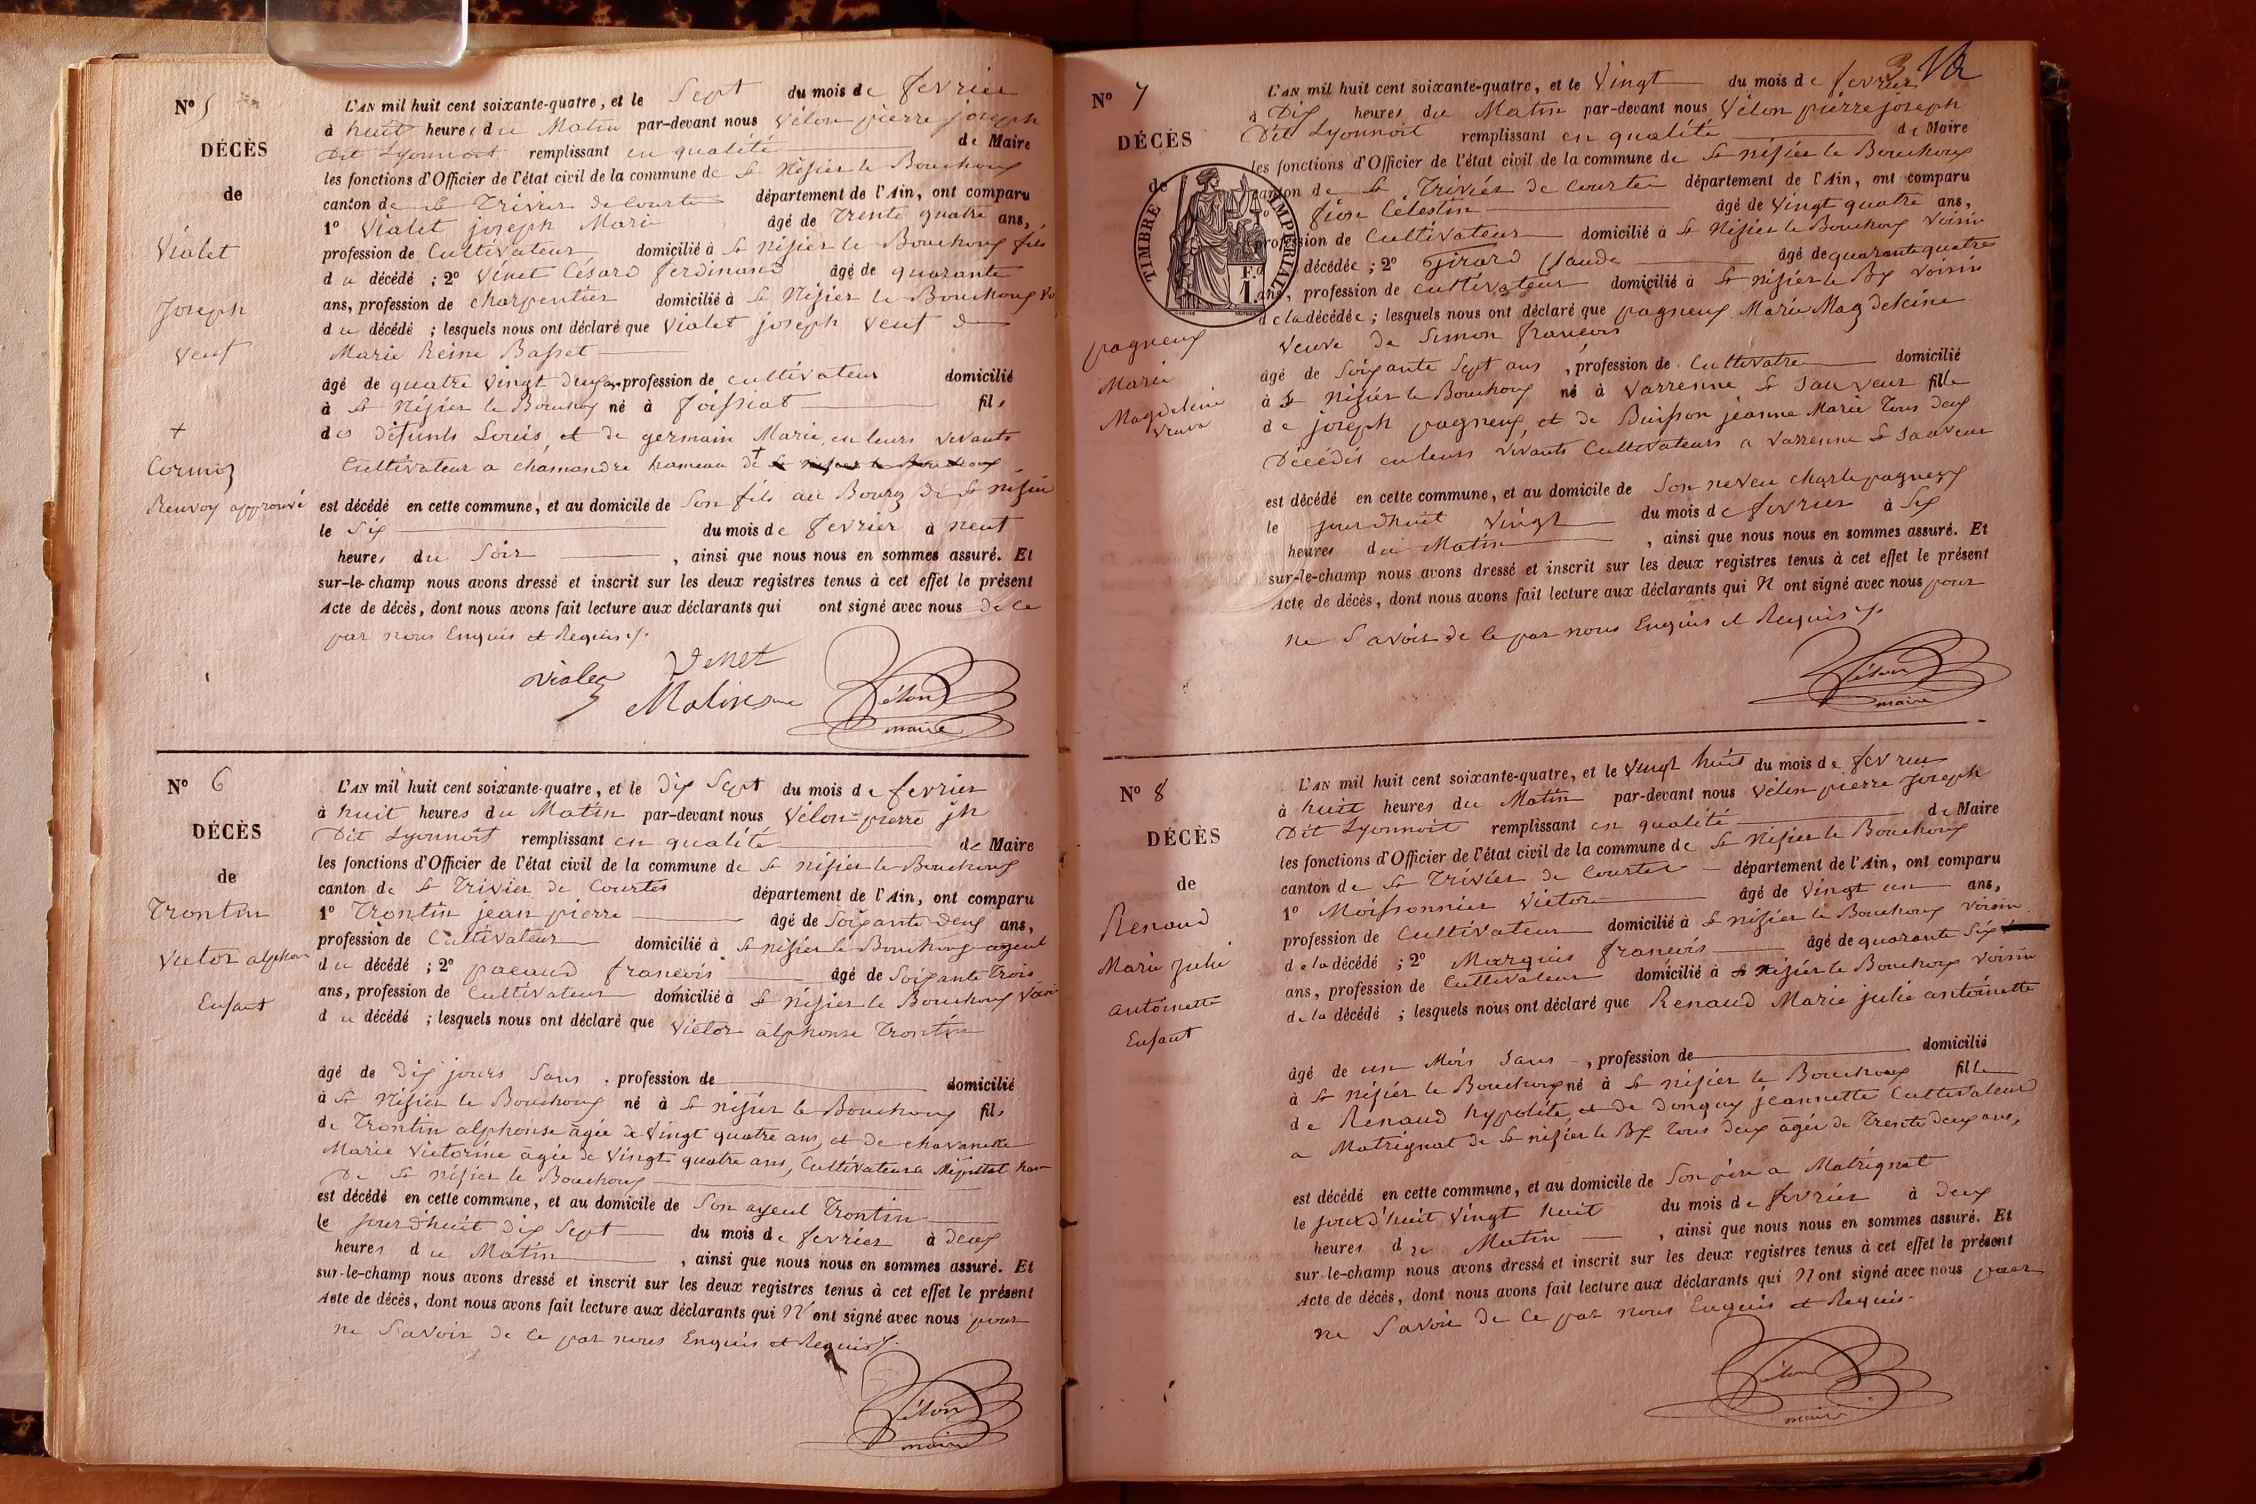 N° 5
DÉCÈS
de
Violet
Joseph
veuf
+
Cormoz
Renvoy approuvé
L'AN mil huit cent soixante-quatre, et le Sept du mois de fevrier
à huit heures du Matin par-devant nous Vélon pierre joseph
Dit Lyonnoit remplissant en qualité de Maire
les fonctions d'Officier de l'état civil de la commune de St Nisier le Bouchoux
canton de St Trivier de Courtes département de l'Ain, ont comparu
1° Violet joseph Marie âgé de Trente quatre ans,
profession de Cultivateur domicilié à St Nisier le Bouchoux fils
du décédé ; 2° Vénet Césard ferdinand âgé de quarante
ans, profession de charpentier domicilié à St Nisier le Bouchoux
du décédé ; lesquels nous ont déclaré que Violet joseph veuf de
Marie Reine Basset
âgé de quatre vingt deux ans profession de cultivateur domicilié
à St Nisier le Bouchoux né à foissiat fils
des défunts Louis et de germain Marie, en leurs vivants
Cultivateur a chamandre hameau de + St Nisier le Bouchoux
est décédé en cette commune, et au domicile de Son fils au Bourg de St nisier
le Six du mois de fevrier à neuf
heures du Soir , ainsi que nous nous en sommes assuré. Et
sur-le-champ nous avons dressé et inscrit sur les deux registres tenus à cet effet le présent
Acte de décès, dont nous avons fait lecture aux déclarants qui ont signé avec nous de ce
par nous Enquis et Requis
violet Venet
Vélon
maire
N° 6
DÉCÈS
de
Trontin
Victor alphonse
Enfant
L'AN mil huit cent soixante-quatre, et le dix Sept du mois de fevrier
à huit heures du Matin par-devant nous Vélon pierre jh
Dit Lyonnoit remplissant en qualité de Maire
les fonctions d'Officier de l'état civil de la commune de St nisier le Bouchoux
canton de St Trivier de Courtes département de l'Ain, ont comparu
1° Trontin jean pierre âgé de Soixante deux ans,
profession de Cultivateur domicilié à St nisier le Bouchoux ayeul
du décédé ; 2° pacaud francois âgé de Soixante Trois
ans, profession de Cultivateur domicilié à St Nisier le Bouchoux Voisin
du décédé ; lesquels nous ont déclaré que Victor alphonse Trontin
âgé de dix jours Sans , profession de domicilié
à St Nisier le Bouchoux né à St nisier le Bouchoux fils
de Trontin alphonse âgée de Vingt quatre ans, et de chavanelle
Marie Victorine âgée de Vingt quatre ans, Cultivateurs a
De St Nisier le Bouchoux
est décédé en cette commune, et au domicile de Son ayeul Trontin
le jourd'huit dix Sept du mois de fevrier à deux
heures du Matin , ainsi que nous nous en sommes assuré. Et
sur-le-champ nous avons dressé et inscrit sur les deux registres tenus à cet effet le présent
Acte de décès, dont nous avons fait lecture aux déclarants qui N'ont signé avec nous pour
ne Savoir de ce par nous Enquis et Requis
Vélon
maire
3
N° 7
DÉCÈS
de
TIMBRE IMPERIAL
1 F.
pagneux
Marie
Magdeleine
veuve
L'AN mil huit cent soixante-quatre, et le Vingt du mois de fevrier
à Dix heures du Matin par-devant nous Vélon pierre joseph
Dit Lyonnoit remplissant en qualité de Maire
les fonctions d'Officier de l'état civil de la commune de St nisier le Bouchoux
canton de St Trivier de Courtes département de l'Ain, ont comparu
1° fion Célestin âgé de Vingt quatre ans,
profession de Cultivateur domicilié à St Nisier le Bouchoux Voisin
décédée ; 2° Girard Claude âgé de quarante quatre
ans, profession de cultivateur domicilié à St nisier le Bx Voisin
de la décédée ; lesquels nous ont déclaré que pagneux Marie Magdeleine
Veuve de Simon francois
âgé de Soixante Sept ans , profession de Cultivatre domicilié
à St Nisier le Bouchoux né à Varrenne St Sauveur fille
de joseph pagneux, et de Buisson jeanne Marie Tous deux
Décédés en leurs vivants Cultivateurs a Varrenne St Sauveur
est décédé en cette commune, et au domicile de Son neveu charle pagneux
le jourdhuit Vingt du mois de fevrier à Six
heures du Matin , ainsi que nous nous en sommes assuré. Et
sur-le-champ nous avons dressé et inscrit sur les deux registres tenus à cet effet le présent
Acte de décès, dont nous avons fait lecture aux déclarants qui N ont signé avec nous pour
ne Savoir de ce par nous Enquis et Requis
Vélon
maire
N° 8
DÉCÈS
de
Renaud
Marie julie
antoinette
Enfant
L'AN mil huit cent soixante-quatre, et le Vingt huit du mois de fevrier
à huit heures du Matin par-devant nous Vélon pierre joseph
Dit Lyonnoit remplissant en qualité de Maire
les fonctions d'Officier de l'état civil de la commune de St Nisier le Bouchoux
canton de St Trivier de Courtes département de l'Ain, ont comparu
1° Moissonnier Victor âgé de Vingt un ans,
profession de Cultivateur domicilié à St nisier le Bouchoux voisin
de la décédé ; 2° Marquis francois âgé de quarante Six
ans, profession de Cultivateur domicilié à St Nisier le Bouchoux Voisin
de la décédé ; lesquels nous ont déclaré que Renaud Marie julie antoinette
âgé de un Mois Sans , profession de domicilié
à St Nisier le Bouchoux né à St nisier le Bouchoux fille
de Renaud hypolite, et de Donguy jeannette Cultivateurs
a Matrignat de St nisier le Bx Tous deux âgés de Trente deux ans,
est décédé en cette commune, et au domicile de Son père a Matrignat
le jourd'huit Vingt huit du mois de fevrier à deux
heures du Matin , ainsi que nous nous en sommes assuré. Et
sur-le-champ nous avons dressé et inscrit sur les deux registres tenus à cet effet le présent
Acte de décès, dont nous avons fait lecture aux déclarants qui N ont signé avec nous pour
ne Savoir de ce par nous Enquis et Requis.
Vélon
maire